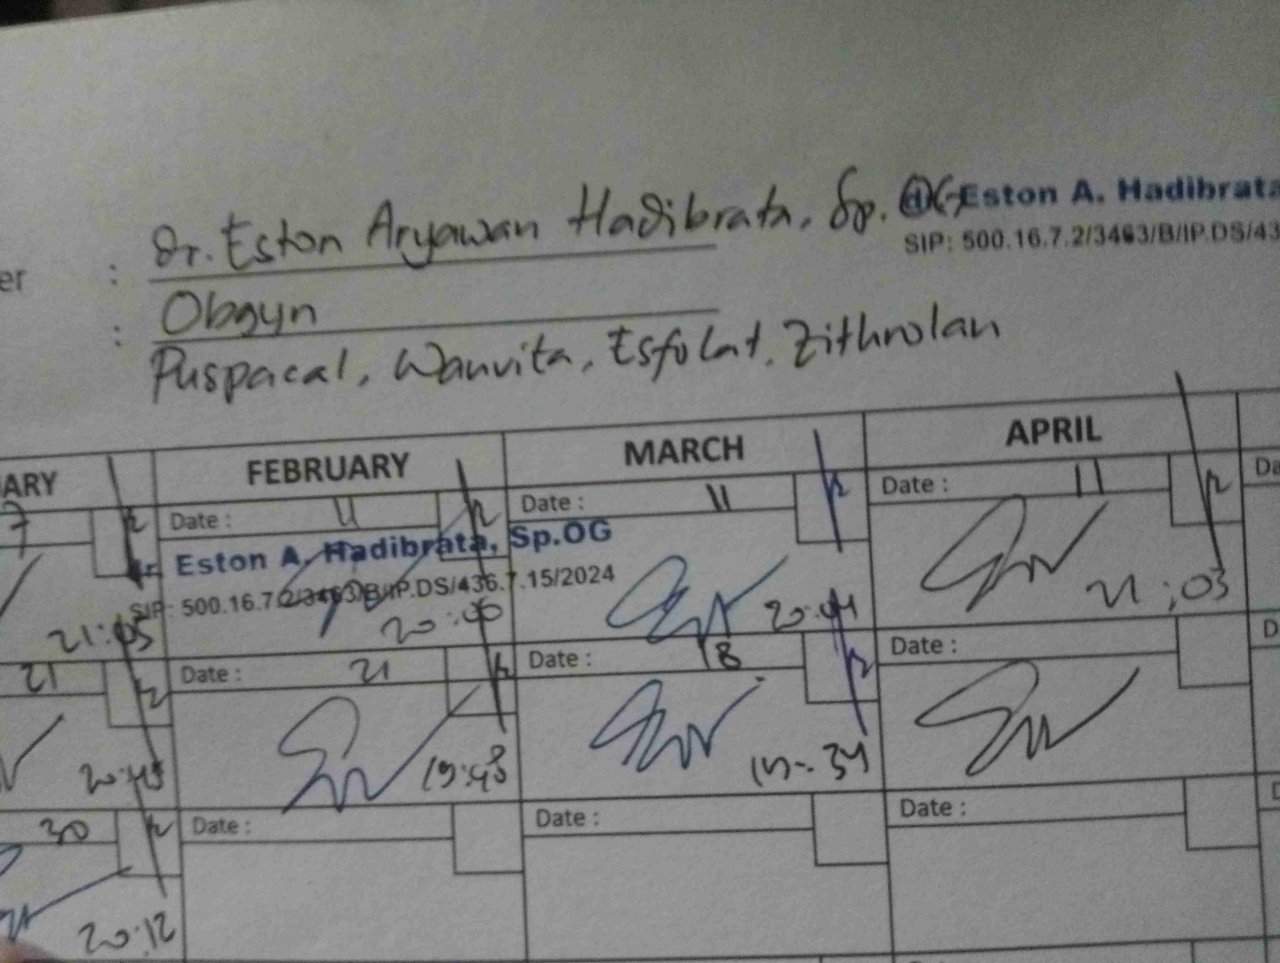 dr. Eston Aryawan Hadibrata, Sp. OG
Eston A. Hadibrata
SIP: 500.16.7.2/3463/B/IP.DS/43
er :
: Obgyn
Puspacal, Wanvita, Esfolat, Zithrolan
ARY FEBRUARY MARCH APRIL
7 Date : 11 Date : 11 Date : 11 Da
Eston A. Hadibrata, Sp.OG
SIP: 500.16.7.2/3463/B/IP.DS/436.7.15/2024
21:05 20:00 20:04 21:03
21 Date : 21 Date : 18 Date : D
20:45 19:48 34
30 Date : Date : Date :
20:12